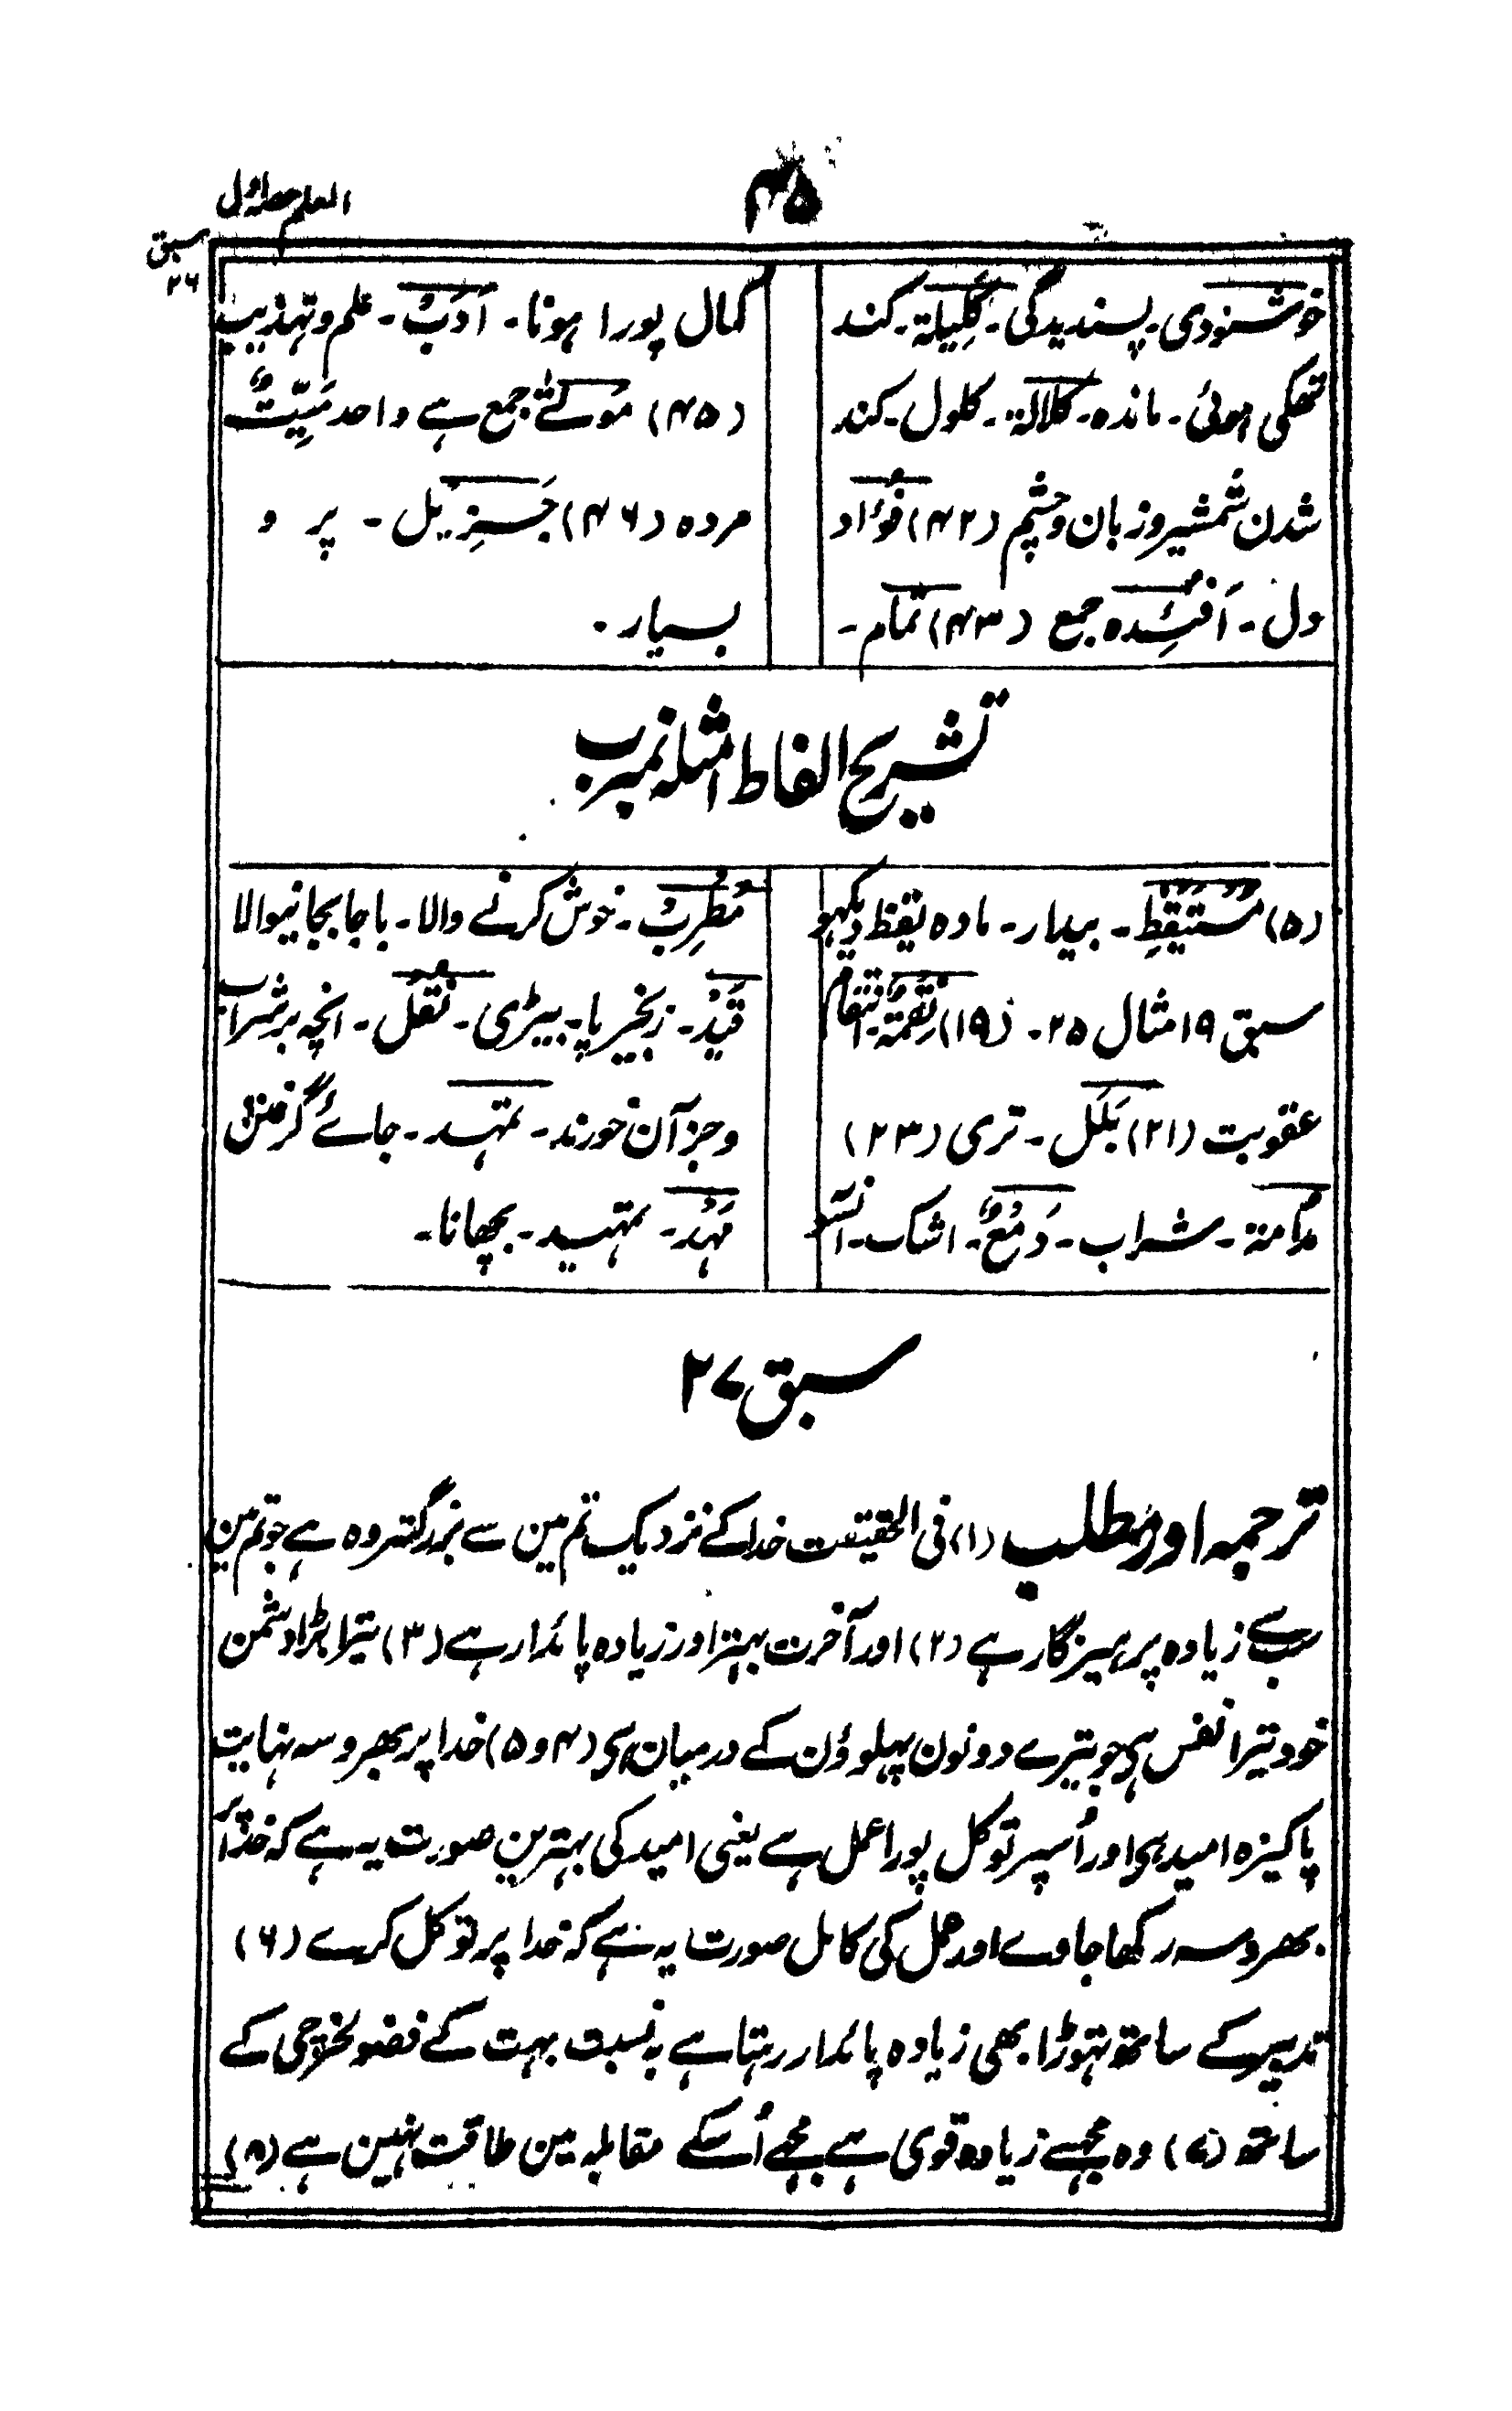 ۴۵
المعلم حصہ اول
سبق
۲۶
خوشنودی۔ پسندیدگی۔ کَلِیلۃ۔ کند
تھکی ہوئی۔ ماندہ۔ کلالۃ۔ کلول۔ کند
شدن شمشیر و زبان و چشم (۴۲) فُؤاد
دل۔ اَفئِدہ جمع (۴۳) تمام۔
کمال پورا ہونا۔ اَدَبٌ۔ علم و تہذیب
(۴۵) مَوتٰی جمع ہے واحد مَیِّتٌ
مردہ (۴۶) جَزِیل۔ پر و
بسیار۔
تشریح الفاظ امثلہ نمبر ب
(۵) مُستَیقِظ۔ بیدار۔ مادہ یقظ دیکھو
سبق ۱۹ مثال ۲۵۔ (۱۹) نِقمَۃ۔ انتقام
عقوبت (۲۱) بَلَل۔ تری (۲۳)
مُدامۃ۔ شراب۔ دَمعٌ۔ اشک۔ آنسو
مُطرِبٌ۔ خوش کرنے والا۔ باجا بجانیوالا
قَید۔ زنجیر پا۔ بیڑی۔ نُقل۔ انچہ بر شراب
و جز آن خورند۔ مہد۔ جائے گرفتن
مَہد۔ تمہید۔ بچھانا۔
سبق ۲۷
ترجمہ اور مطلب (۱) فی الحقیقت خدا کے نزدیک تم مین سے بزرگتر وہ ہے جو تم مین
سب سے زیادہ پرہیزگار ہے (۲) اور آخرت بہتر اور زیادہ پائدار ہے (۳) تیرا بڑا دشمن
خود تیرا نفس ہی جو تیرے دونون پہلوؤن کے درمیان ہی (۴ و ۵) خدا پر بھروسہ نہایت
پاکیزہ امید ہی اور اُسپر توکل پورا عمل ہے یعنی امید کی بہترین صورت یہ ہے کہ خدا پر
بھروسہ رکھا جاوے اور عمل کی کامل صورت یہ ہے کہ خدا پر توکل کرے (۶)
تدبیر کے ساتھ تہوڑا بھی زیادہ پائدار رہتا ہے بہ نسبت بہت کے فضولخرچی کے
ساتھ (۷) وہ مجہسے زیادہ قوی ہے مجھے اُسکے مقابلہ مین طاقت نہین ہے (۸)